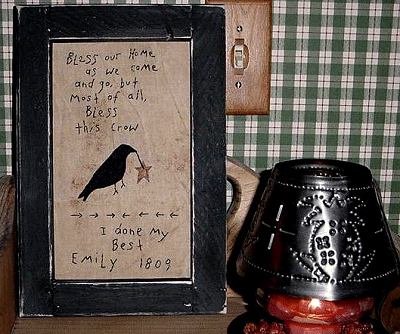 Bless our Home
as we come
and go, but
most of all,
Bless
this crow
→ → → ← ← ← ←
I done my
Best
Emily 1809